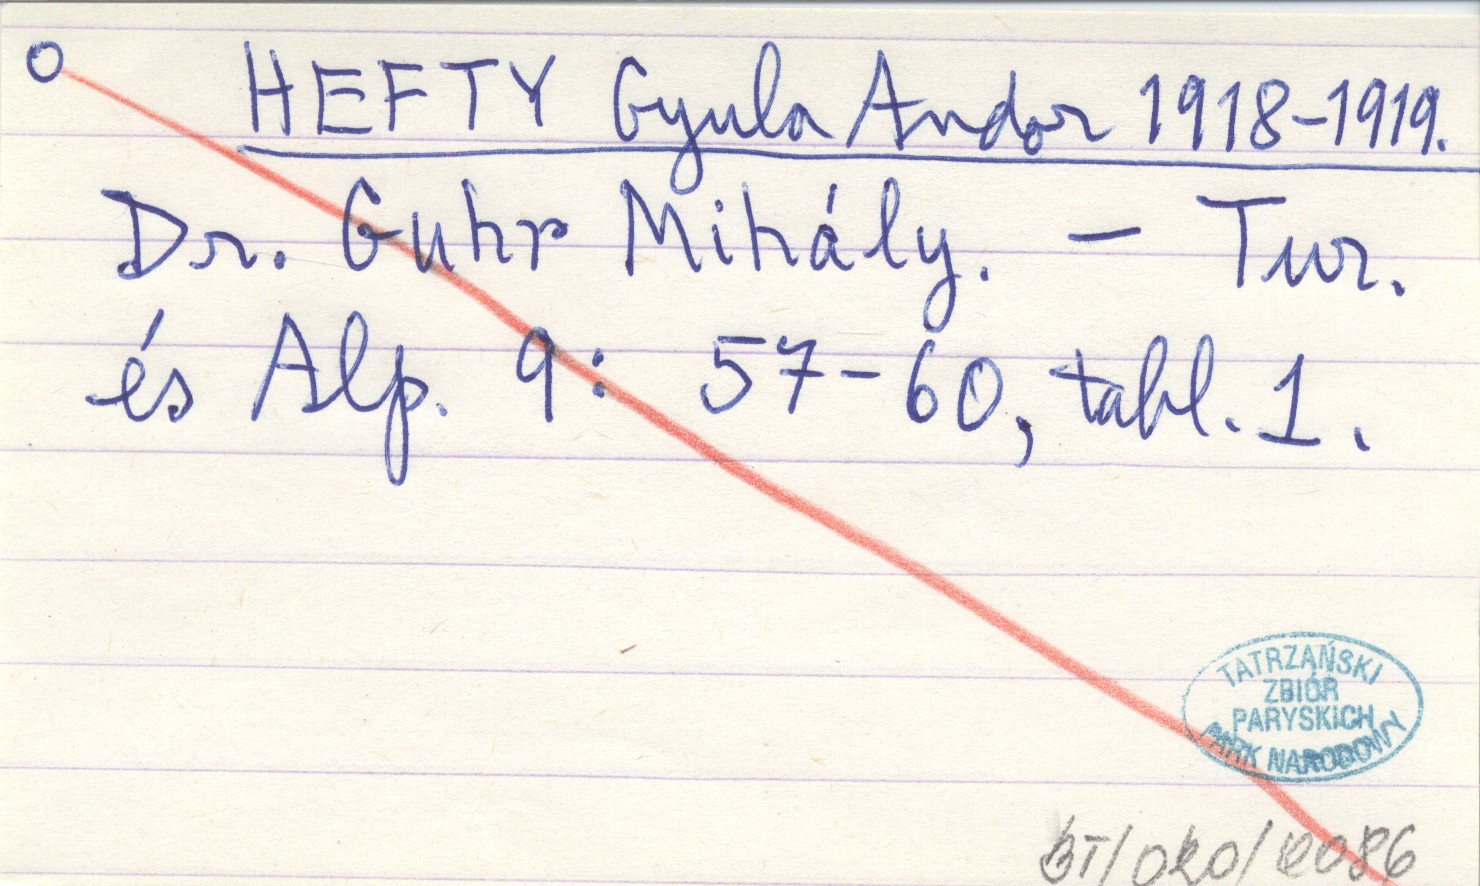 O
HEFTY Gyula Andor 1918-1919.
Dr. Guhr Mihály. - Tur.
és Alp. 9: 57-60, tabl. 1.
TATRZAŃSKI
ZBIÓR
PARYSKICH
PARK NARODOWY
BT/020/2086